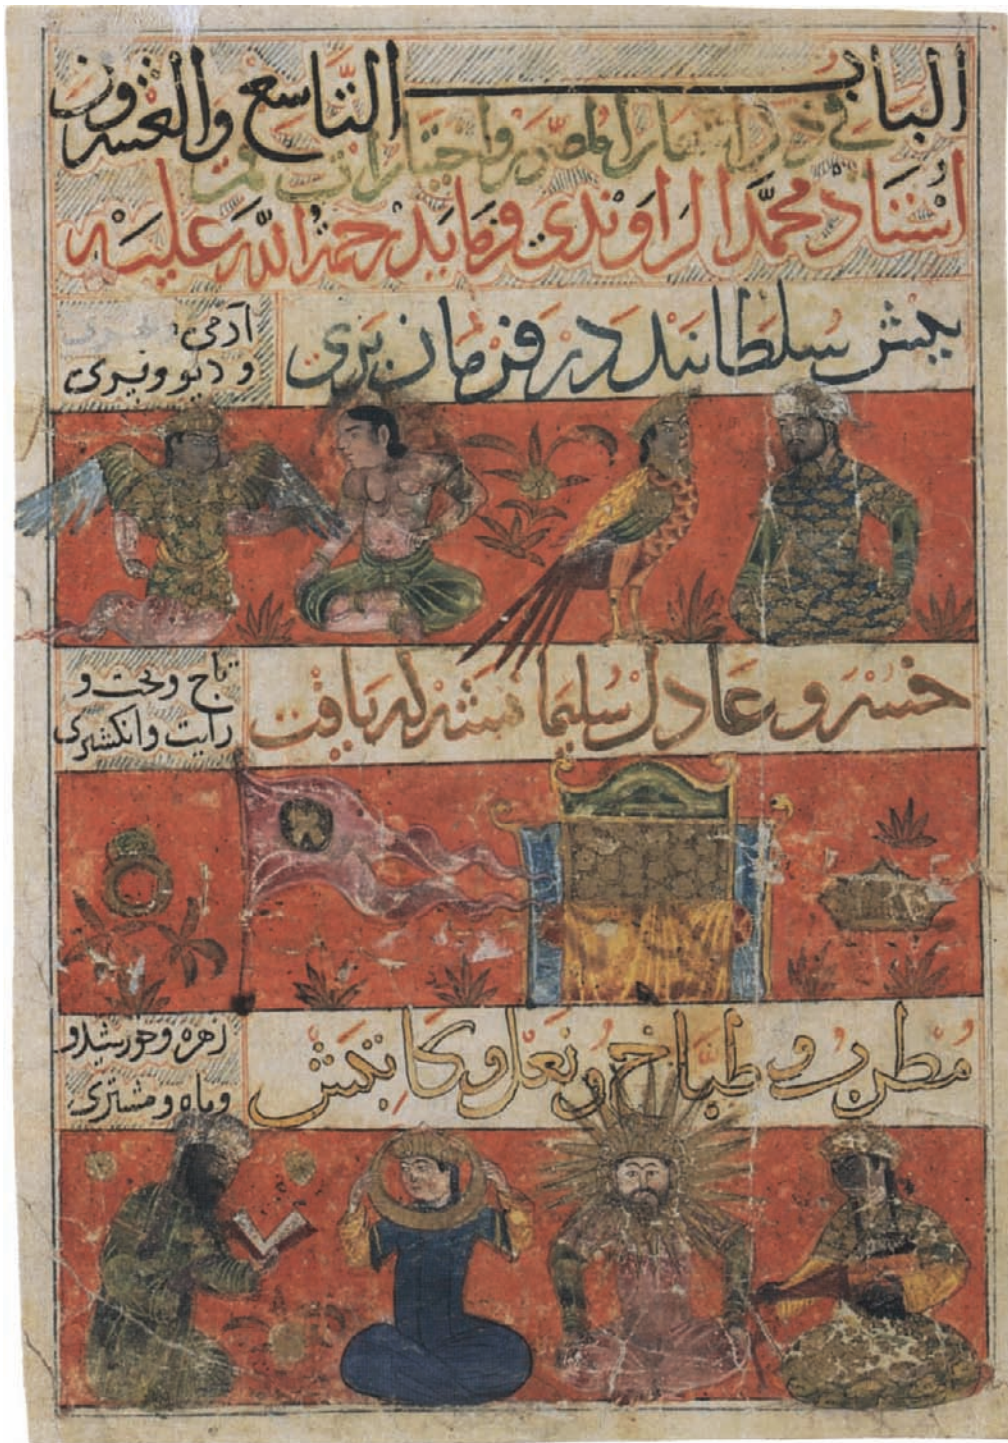 الباب التاسع والعشرون
في ذكر اشعار المصور واختيارات قمر
استاد محمد الراوندي فرمايد رحمة الله عليه
پیش سلطانند در فرمان بری
آدمی
و دیو و پری
خسرو عادل یافت
تاج وتخت و
رایت وانکشتری
مطرب و طباخ و نعل و کاتبش
زهره وخورشید و
وماه ومشتری